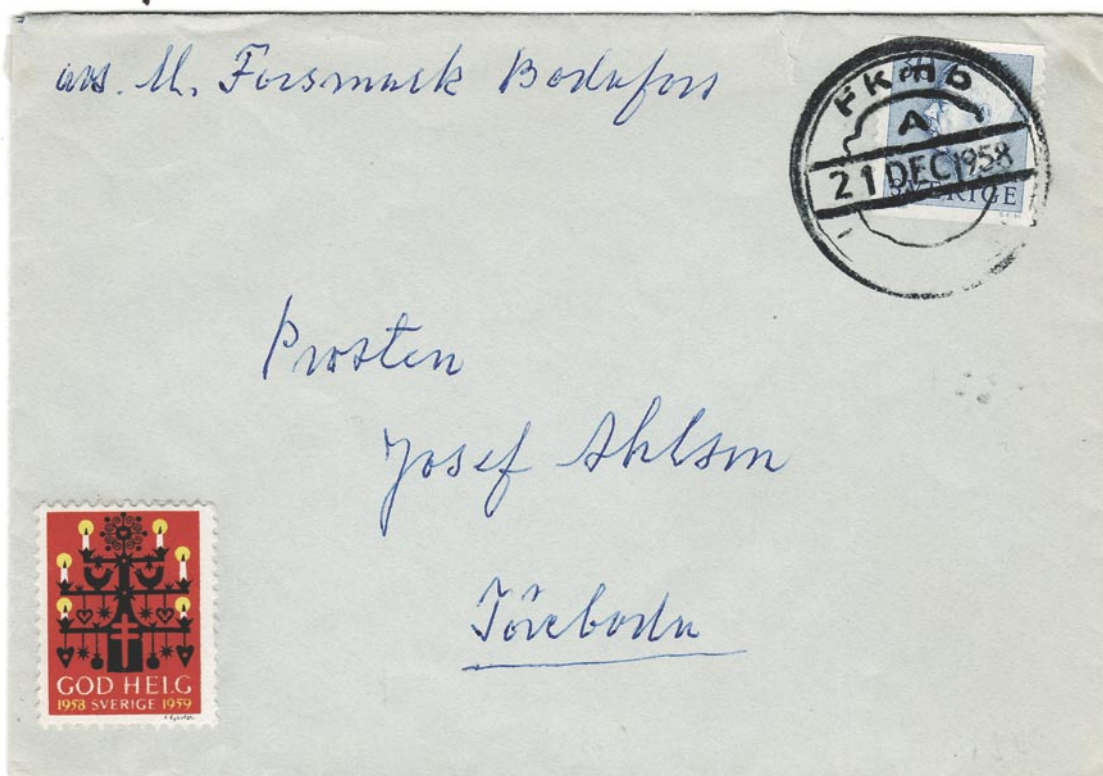 avs. M. Forsmark Bodafors
PKXP 6
A
21 DEC 1958
SVERIGE
Prosten
Josef Ahlson
Töreboda
GOD HELG
1958 SVERIGE 1959